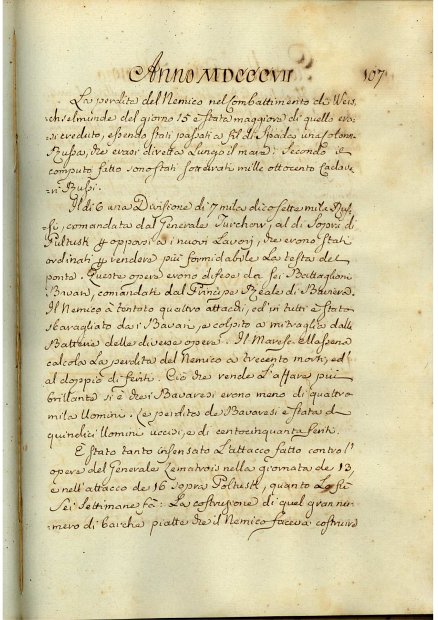 Anno MDCCCVII
107
La perdita del Nemico nel Combattimento di Weis
chselmunde del giorno 15 è stata maggiore di quello era
si creduto, essendo stati passati a fil di Spada una Colonna
Russa, che erasi diretta lungo il mare: Secondo il
computo fatto sono stati sotterrati mille ottocento Cadave
ri Russi.
Il di 6 una Divisione di 7 mila dico sette mila Rus
si, comandata dal Generale Turchow, al di Sopra di
Pultusk p opporsi a i nuovi Lavorj, che erono stati
ordinati p rendere più formidabile La testa del
ponte. Queste opere erono difese da sei Battaglioni
Bavari, comandati dal Principe Reale di Baviera.
Il Nemico à tentato quattro attacchi, ed in tutti è stato
sbaragliato da i Bavari, e colpito a mitraglia dalle
Batterie delle diverse opere. Il Maresc. Massena
calcola La perdita del Nemico a trecento morti, ed
al doppio di feriti. Ciò che rende L'affare più
brillante si è che i Bavaresi erono meno di quattro
mila Uomini. Le perdite de Bavaresi è stata di
quindici Uomini uccisi, e di centocinquanta feriti.
È stato tanto insensato L'attacco fatto contro l'
opere del Generale Lemarois nella giornata de 13,
e nell'attacco de 16 sopra Poltusk, quanto Lo fù
Sei Settimane fà: La costruzione di quel gran nu
mero di barche piatte che il Nemico faceva costruire